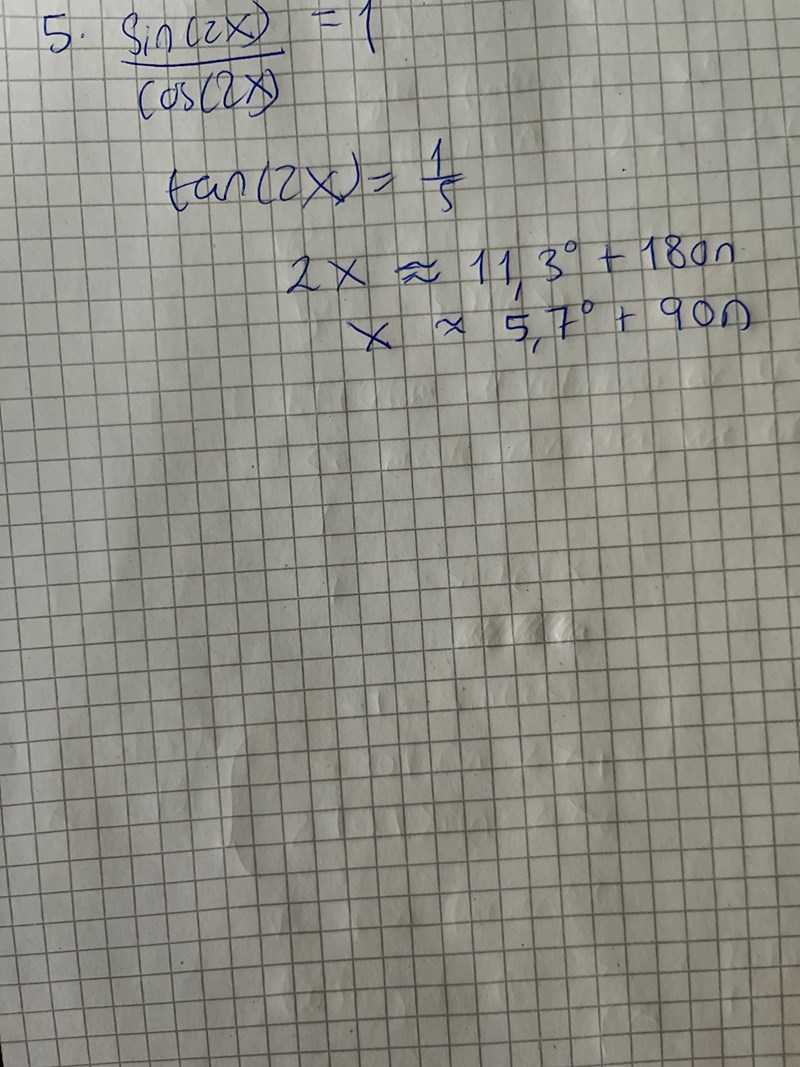 5. sin(2x)/cos(2x) = 1
tan(2x) = 1/5
2x ≈ 11,3° + 180n
x ≈ 5,7° + 90n